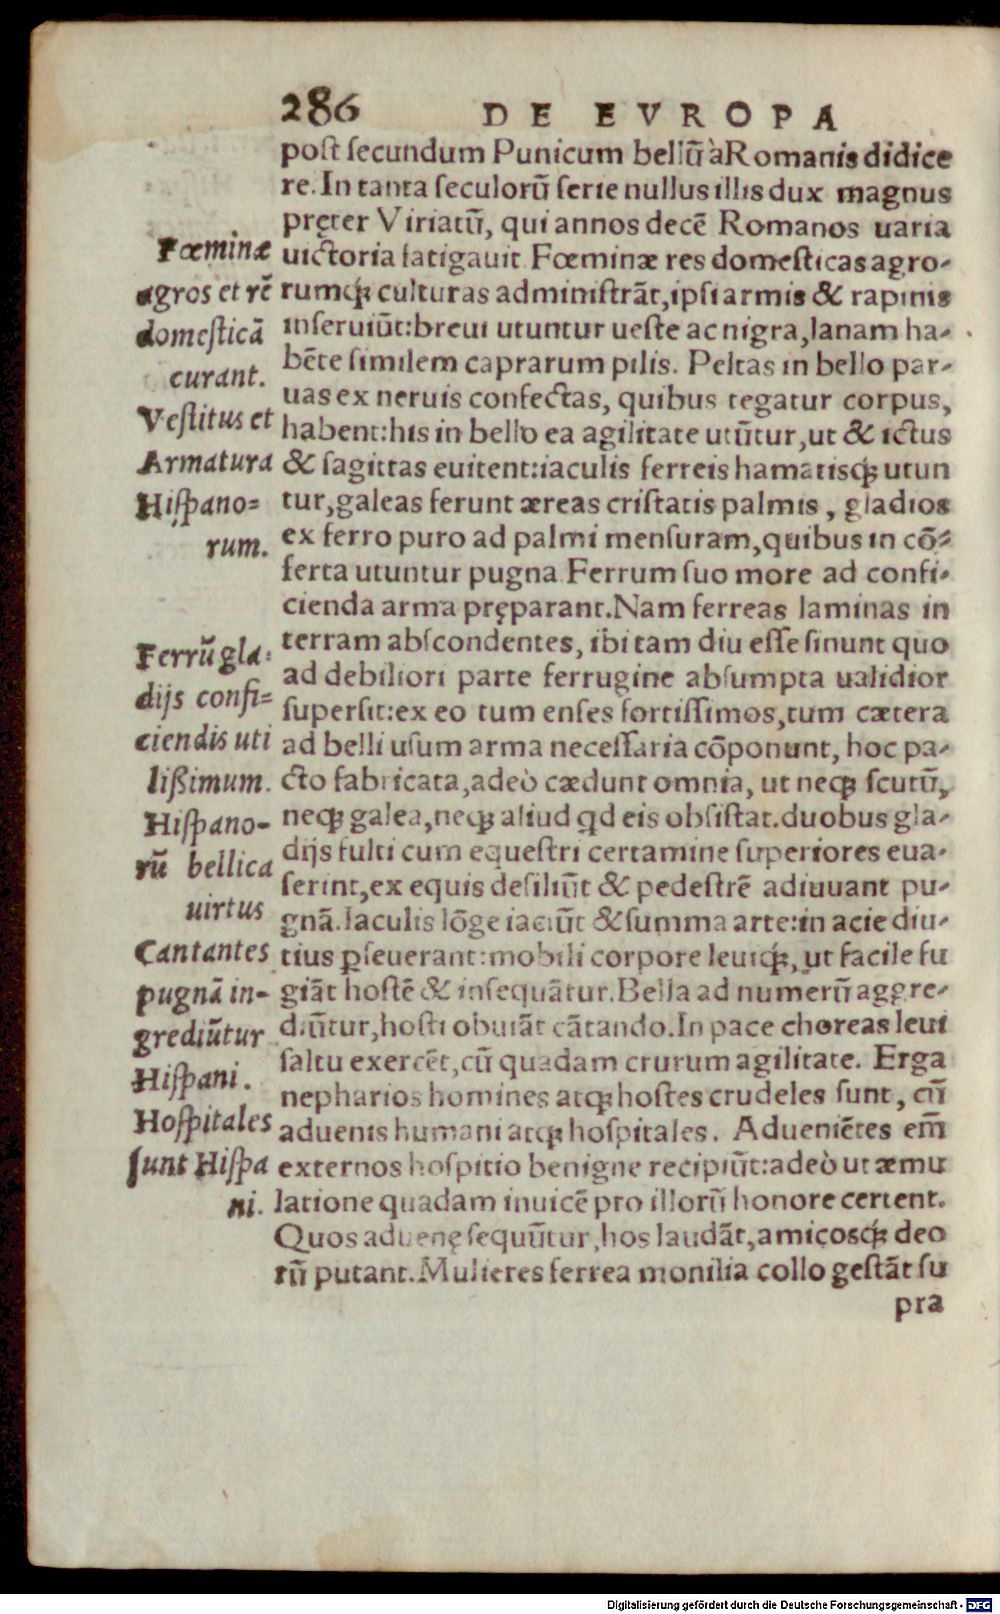 286 DE EVROPA
post ſecundum Punicum bellū à Romanis didice
re. In tanta ſeculorū ſerie nullus illis dux magnus
pręter Viriatū, qui annos decē Romanos uaria
uictoria fatigauit. Fœminæ res domeſticas agro-
rumq́ culturas adminiſtrāt, ipſi armis & rapinis
inſeruiūt: breui utuntur ueſte ac nigra, lanam ha-
bēte ſimilem caprarum pilis. Peltas in bello par-
uas ex neruis confectas, quibus tegatur corpus,
habent: his in bello ea agilitate utūtur, ut & ictus
& ſagittas euitent: iaculis ferreis hamatisq́ utun
tur, galeas ferunt æreas criſtatis palmis, gladios
ex ferro puro ad palmi menſuram, quibus in cō-
ferta utuntur pugna. Ferrum ſuo more ad confi-
cienda arma pręparant. Nam ferreas laminas in
terram abſcondentes, ibi tam diu eſſe ſinunt quo
ad debiliori parte ferrugine abſumpta ualidior
ſuperſit: ex eo tum enſes fortiſſimos, tum cætera
ad belli uſum arma neceſſaria cōponunt, hoc pa-
cto fabricata, adeò cædunt omnia, ut neq́ ſcutū,
neq́ galea, neq́ aliud qd eis obſiſtat. duobus gla-
dijs fulti cum equeſtri certamine ſuperiores eua-
ſerint, ex equis deſiliūt & pedeſtrē adiuuant pu-
gnā. Iaculis lōge iaciūt & ſumma arte: in acie diu-
tius ꝑſeuerant: mobili corpore leuiq́, ut facile fu
giāt hoſtē & inſequātur. Bella ad numerū aggre-
diūtur, hoſti obuiāt cātando. In pace choreas leui
ſaltu exercēt, cū quadam crurum agilitate. Erga
nepharios homines atq́ hoſtes crudeles ſunt, cū
aduenis humani atq́ hoſpitales. Adueniētes em̄
externos hoſpitio benigne recipiūt: adeò ut æmu
latione quadam inuicē pro illorū honore certent.
Quos aduenę ſequūtur, hos laudāt, amicosq́ deo
rū putant. Mulieres ferrea monilia collo geſtāt ſu
pra
Fœminæ
agros et rē
domeſticā
curant.
Veſtitus et
Armatura
Hiſpano=
rum.
Ferrū gla=
dijs confi=
ciendis uti
lißimum.
Hiſpano-
rū bellica
uirtus
Cantantes
pugnā in-
grediūtur
Hiſpani.
Hoſpitales
ſunt Hiſpa
ni.
Digitalisierung gefördert durch die Deutsche Forschungsgemeinschaft - DFG